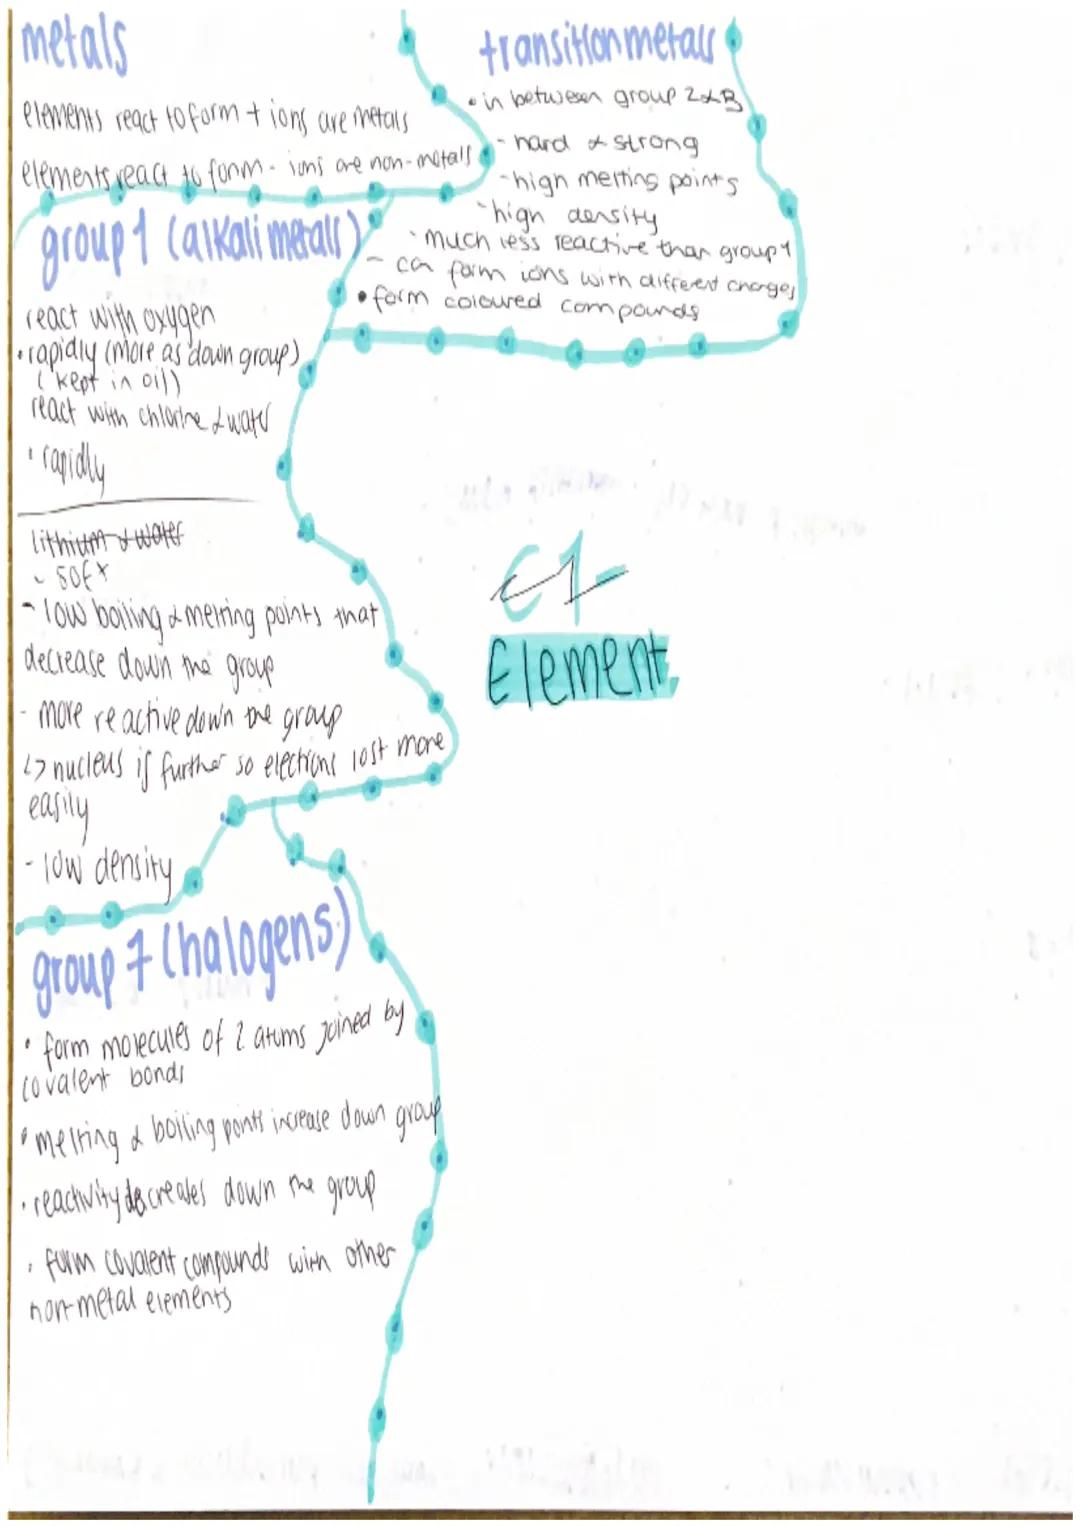 metals
elements react to form + ions are metals
elements react to form - ions are non-metals
group 1 (alkali metals)
react with oxygen
• rapidly (more as down group)
(kept in oil)
react with chlorine & water
• rapidly
lithium & water
- soft
- low boiling & melting points that
decrease down the group
- more reactive down the group
↳ nucleus is further so electrons lost more
easily
- low density
group 7 (halogens)
• form molecules of 2 atoms joined by
covalent bonds
• melting & boiling points increase down group
• reactivity decreases down the group
• form covalent compounds with other
non-metal elements
transition metals
• in between group 2 & 3
- hard & strong
- high melting points
- high density
- much less reactive than group 1
- can form ions with different charges
• form coloured compounds
C1-
Element